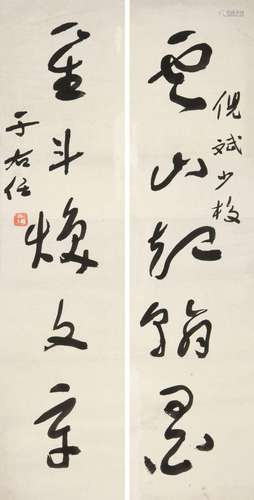 倪斌少校
雲山起翰墨
星斗煥文章
于右任